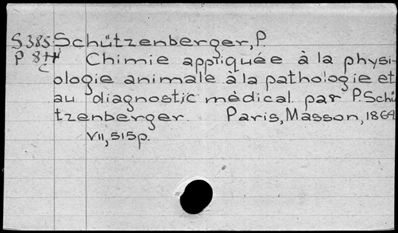 S385 Schützenberger, P.
P 84 Chimie appliquée à la physi-
c ologie animale à la pathologie et
au diagnostic médical par P. Schü
tzenberger. Paris, Masson, 1864
VII, 515p.